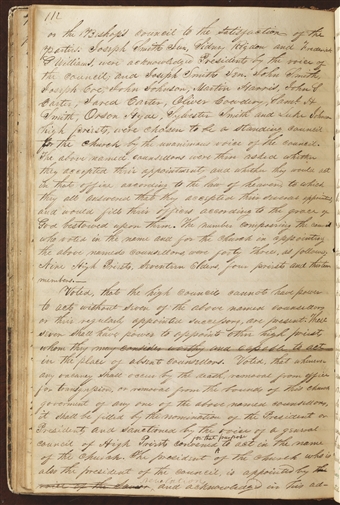 112
or the Bishop's council to the satisfaction of the
parties. Joseph Smith Jun, Sidney Rigdon and Frederick
G Williams, were acknowledged Presidents by the voice of
the council; and Joseph Smith Sen. John Smith,
Joseph Coe, John Johnson, Martin Harris, John S.
Carter, Jared Carter, Oliver Cowdery, Samuel H.
Smith, Orson Hyde, Sylvester Smith and Luke Johnson
high priests, were chosen to be a standing council
for the church by the unanimous voice of the council.
The above named counsellors were then asked whether
they accepted their appointments and whether they would act
in that office according to the law of heaven: to which
they all answered that they accepted their appointments
and would fill their offices according to the grace of
God bestowed upon them. The number composing the council
who voted in the name and for the church in appointing
the above named counsellors were forty three, as follows;
Nine High Priests, seventeen elders, four priests and thirteen
members.
Voted, that the high council cannot have power
to act without seven of the above named counsellors
or their regularly appointed successors are present. These
seven shall have power to appoint other high priests
whom they may consider worthy and capable to act
in the place of absent counsellors. Voted, that whenever
any vacancy shall occur by the death, removal from office
for transgression, or removal from the bounds of this church
government of any one of the above named counsellors,
it shall be filled by the nomination of the President or
Presidents and sanctioned by the voice of a general
council of High Priests convened for that purpose to act in the name
of the church. The president of the church who is
also the president of the council is appointed by the
revelation
voice of the and acknowledged in his ad-